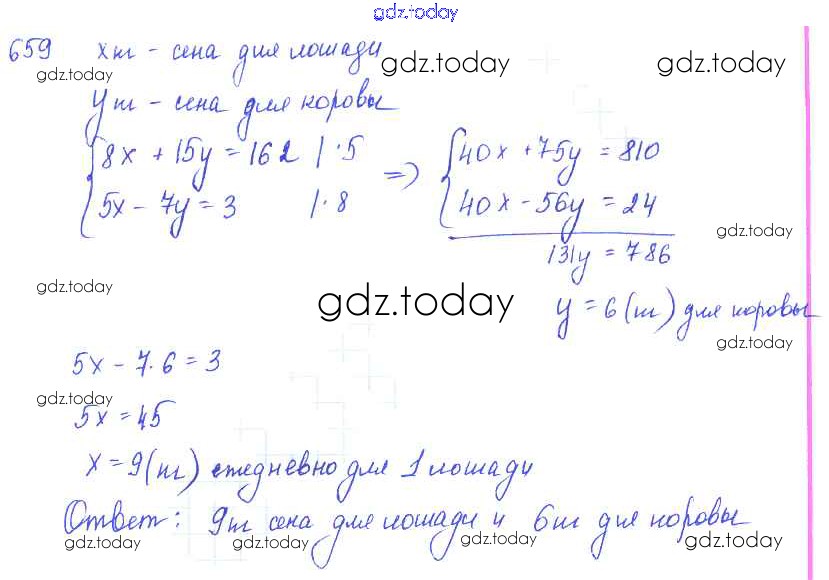 gdz.today
659 x т - сена для лошади
gdz.today gdz.today gdz.today
y т - сена для коровы
8x + 15y = 162 | · 5 => 40x + 75y = 810
5x - 7y = 3 | · 8 40x - 56y = 24
gdz.today
131y = 786
gdz.today gdz.today
y = 6 (т) для коровы
gdz.today
5x - 7 · 6 = 3
gdz.today
5x = 45
x = 9 (т) ежедневно для 1 лошади
Ответ: 9т сена для лошади и 6т для коровы
gdz.today gdz.today gdz.today gdz.today